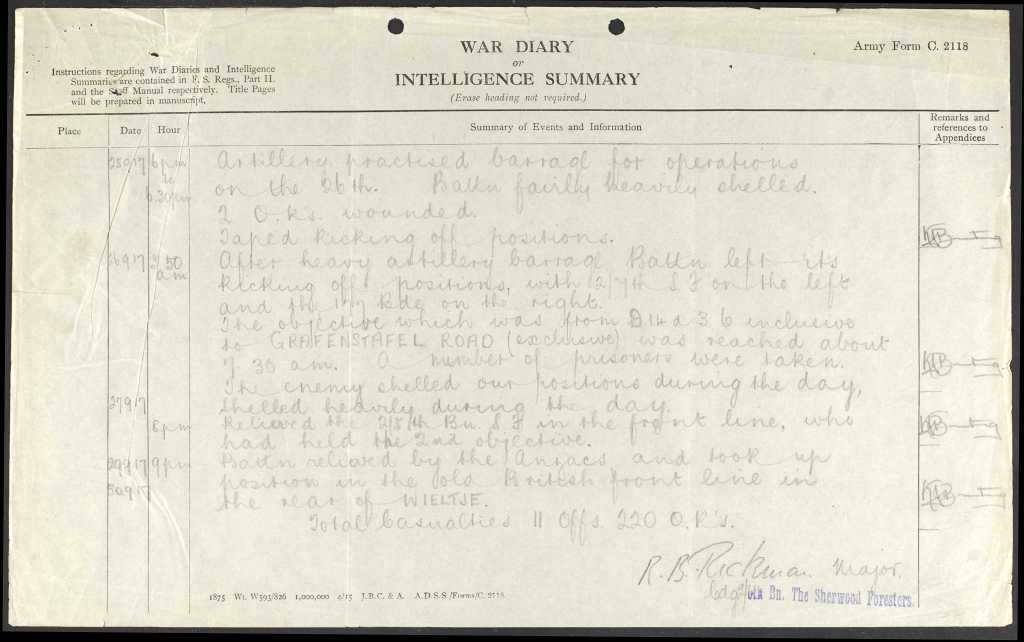 WAR DIARY
or
INTELLIGENCE SUMMARY
(Erase heading not required.)
Army Form C. 2118
Instructions regarding War Diaries and Intelligence
Summaries are contained in F. S. Regs., Part II.
and the Staff Manual respectively. Title Pages
will be prepared in manuscript.
Place Date Hour Summary of Events and Information Remarks and references to Appendices
25 9 17 6 pm to 6.30 pm Artillery practised barrage for operations
on the 26th. Battn fairly heavily shelled.
2 O.R's. wounded.
Taped kicking off positions.
26 9 17 5 50 am After heavy artillery barrage Battn left its
kicking off positions, with 2/7th S F on the left
and the 177 Bde on the right.
The objective which was from D 14 a 3 6 inclusive
to GRAFENSTAFEL ROAD (exclusive) was reached about
7 30 am. A number of prisoners were taken.
The enemy shelled our positions during the day,
27 9 17 shelled heavily during the day.
8 pm Relieved the 2/5th Bn. S F in the front line, who
had held the 2nd objective.
29 9 17 9 pm Battn relieved by the Anzacs and took up
30 9 17 position in the old British front line in
the rear of WIELTJE.
Total Casualties 11 Offs 220 O.R's.
R. B. Rickman Major.
Cdg 2/6th Bn. The Sherwood Foresters.
1875 Wt. W593/826 1,000,000 4/15 J.B.C. & A. A.D.S.S./Forms/C. 2118.